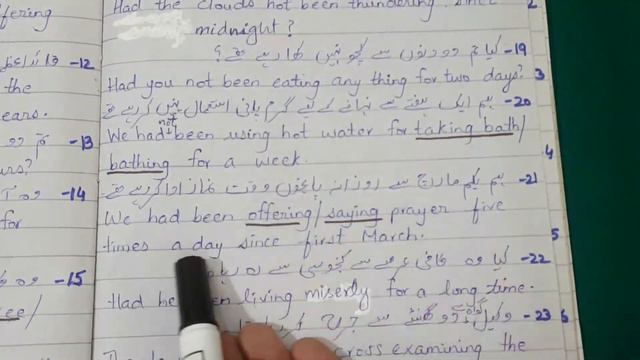 ffering
the
ears.
urs?
for
Had the clouds not been thundering since
midnight?
19- کیا تم دو دنوں سے کچھ نہیں کھا رہے تھے؟
Had you not been eating any thing for two days?
20- ہم ایک ہفتے سے نہانے کے لیے گرم پانی استعمال نہیں کر رہے تھے
We had not been using hot water for taking bath/
bathing for a week.
21- ہم یکم مارچ سے روزانہ پانچوں وقت نماز ادا کر رہے تھے
We had been offering/saying prayer five
times a day since first March.
22- کیا وہ کافی عرصے سے کنجوسی سے رہ رہا
Had he living miserly for a long time.
23- وکیل دو گھنٹے سے جرح
cross examining the
12-
13-
14- وہ
15- وہ
2
3
4
5
6